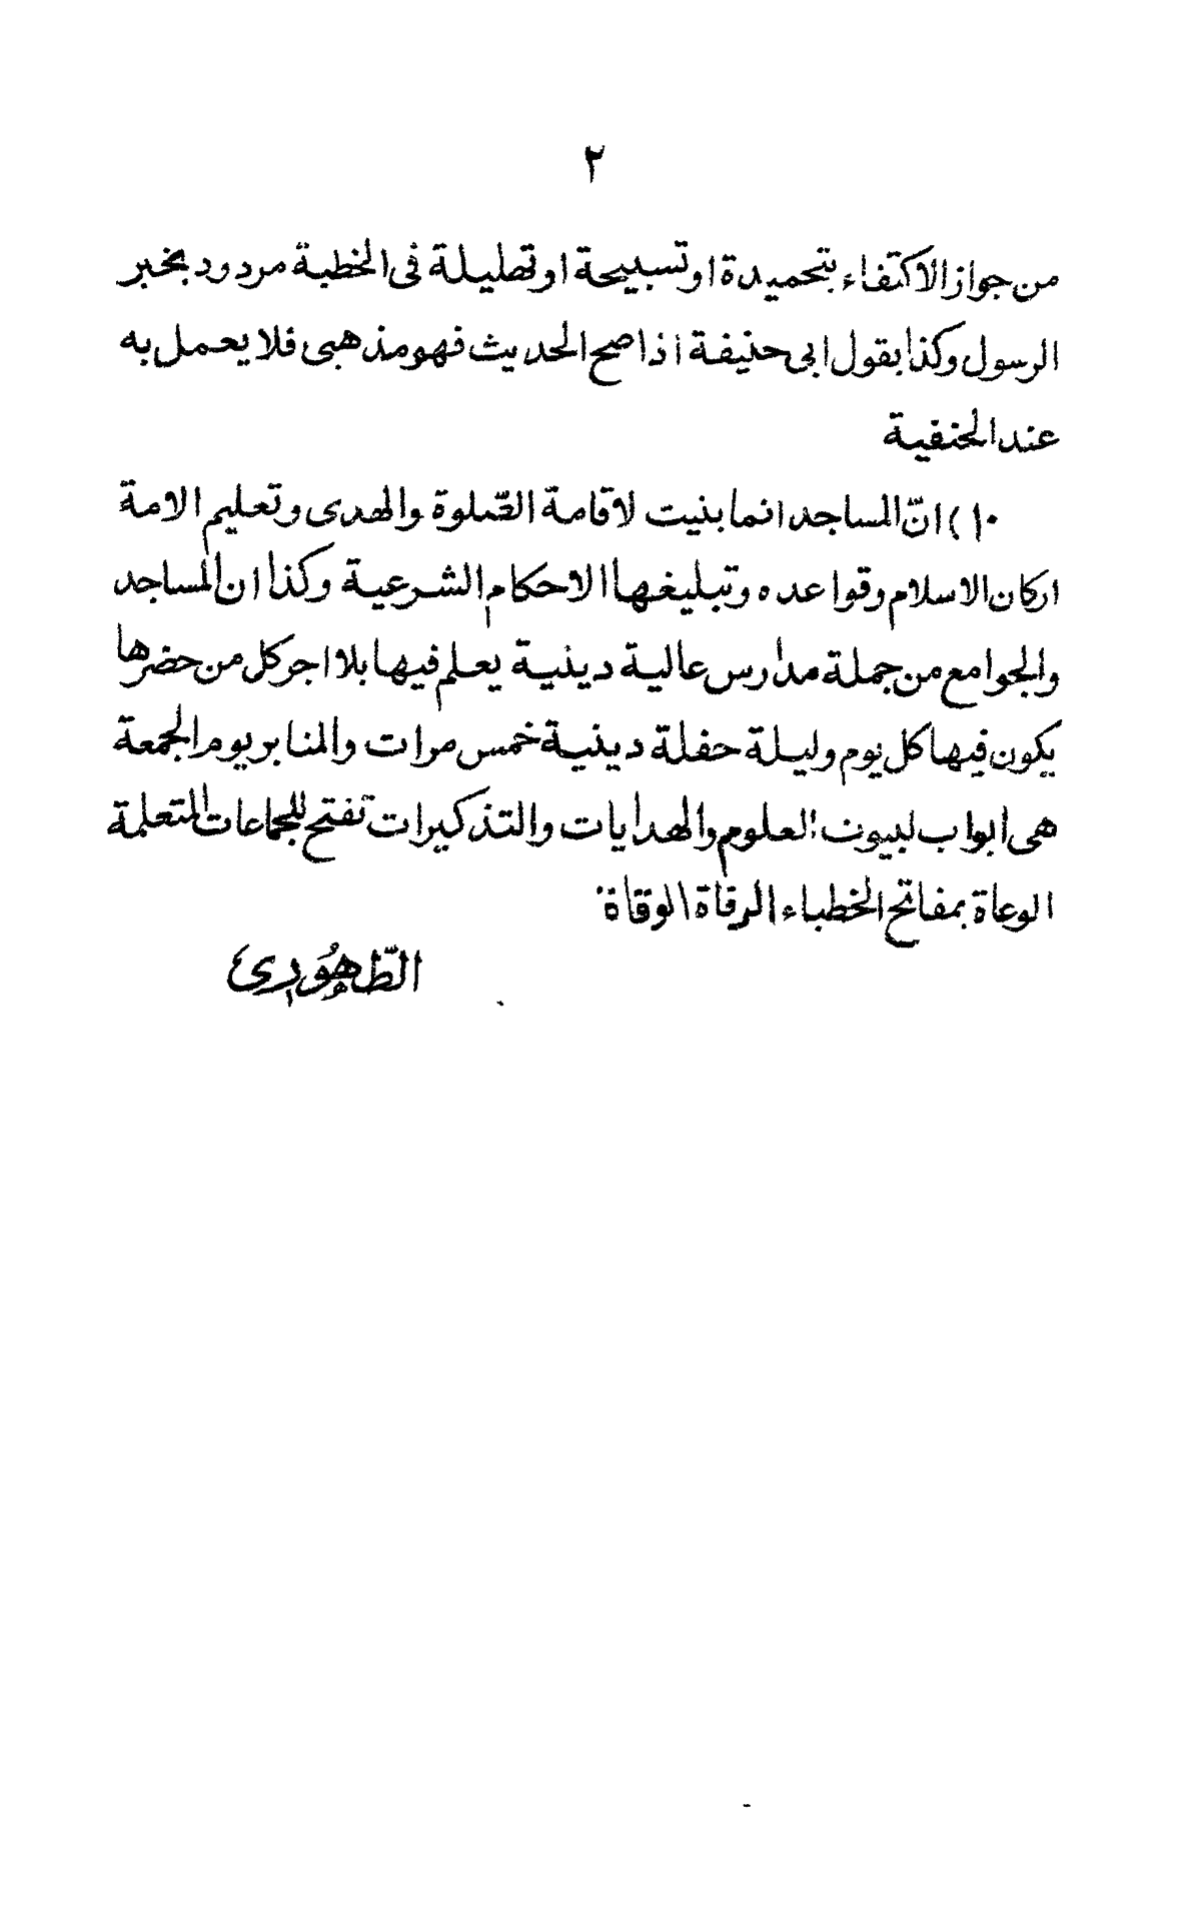 ٢
من جواز الاكتفاء بتحميدة او تسبيحة او تهليلة فى الخطبة مردود بخبر
الرسول وكذا بقول ابى حنيفة اذا صح الحديث فهو مذهبى فلا يعمل به
عند الحنفية
١٠) انّ المساجد انما بنيت لاقامة الصّلوة والهدى وتعليم الامة
اركان الاسلام وقواعده وتبليغها الاحكام الشرعية وكذا ان المساجد
والجوامع من جملة مدارس عالية دينية يعلم فيها بلا اجر كل من حضرها
يكون فيها كل يوم وليلة حفلة دينية خمس مرات والمنابر يوم الجمعة
هى ابواب لبيوت العلوم والهدايات والتذكيرات تفتح للجماعات المتعلمة
الوعاة بمفاتح الخطباء الرقاة الوقاة
الظّهُورى